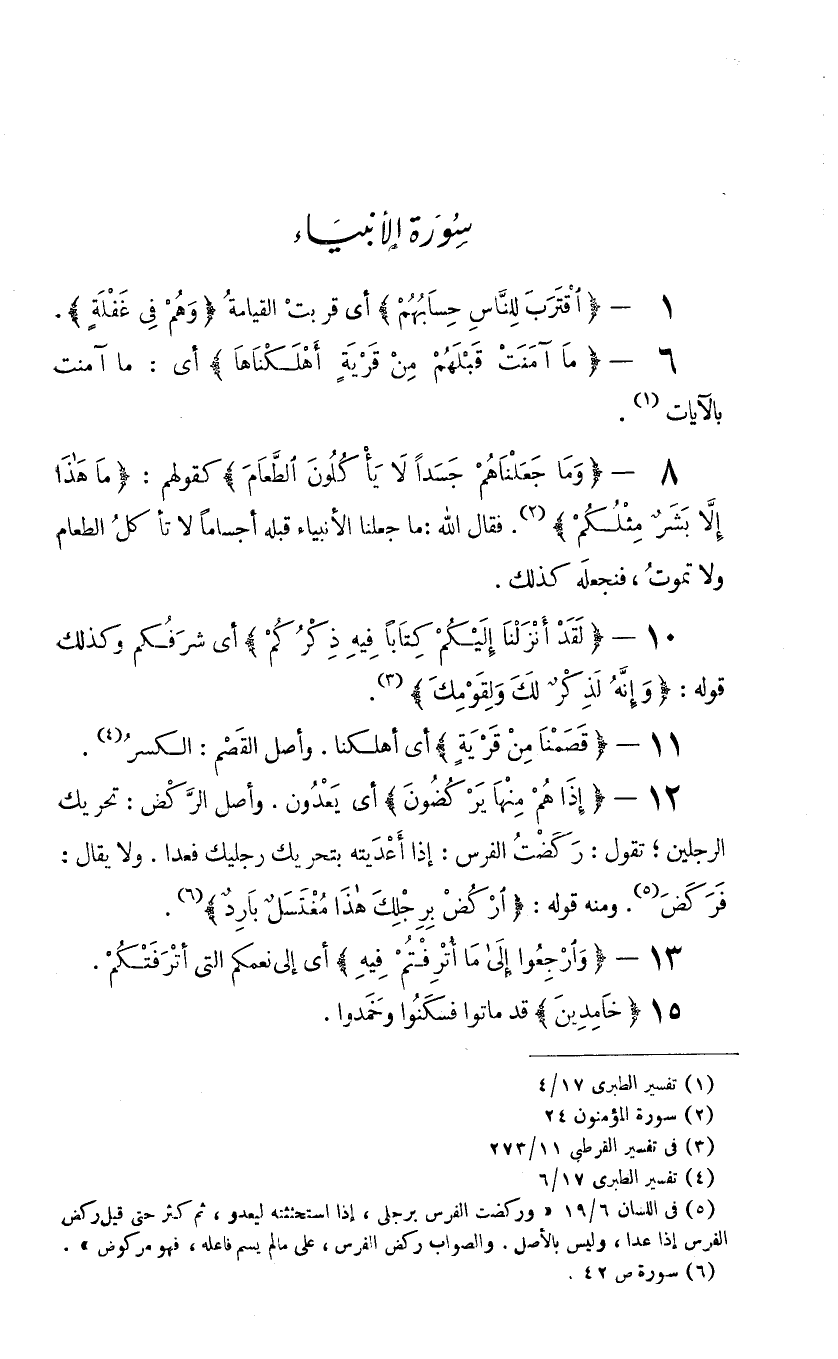 سُورَة الأنْبيَاء
١ — ﴿ ٱقْتَرَبَ لِلنَّاسِ حِسَابُهُمْ ﴾ أى قربتْ القيامةُ ﴿ وَهُمْ فِى غَفْلَةٍ ﴾ .
٦ — ﴿ مَا آمَنَتْ قَبْلَهُمْ مِنْ قَرْيَةٍ أَهْلَكْنَاهَا ﴾ أى : ما آمنت
بالآيات (١) .
٨ — ﴿ وَمَا جَعَلْنَاهُمْ جَسَداً لَا يَأْكُلُونَ ٱلطَّعَامَ ﴾ كقولهم : ﴿ مَا هَٰذَا
إِلَّا بَشَرٌ مِثْلُكُمْ ﴾ (٢) . فقال الله : ما جعلنا الأنبياء قبله أجساماً لا تأكلُ الطعام
ولا تموتُ ، فنجعلَه كذلك .
١٠ — ﴿ لَقَدْ أَنْزَلْنَا إِلَيْكُمْ كِتَاباً فِيهِ ذِكْرُكُمْ ﴾ أى شرفُكم وكذلك
قوله : ﴿ وَإِنَّهُ لَذِكْرٌ لَكَ وَلِقَوْمِكَ ﴾ (٣) .
١١ — ﴿ قَصَمْنَا مِنْ قَرْيَةٍ ﴾ أى أهلكنا . وأصل القَصْم : الكسرُ (٤) .
١٢ — ﴿ إِذَا هُمْ مِنْهَا يَرْكُضُونَ ﴾ أى يَعْدُون . وأصل الرَّكْض : تحريك
الرجلين ؛ تقول : رَكَضْتُ الفرس : إذا أَعْدَيته بتحريك رجليك فعدا . ولا يقال :
فَرَكَضَ (٥) . ومنه قوله : ﴿ ٱرْكُضْ بِرِجْلِكَ هَٰذَا مُغْتَسَلٌ بَارِدٌ ﴾ (٦) .
١٣ — ﴿ وَٱرْجِعُوا إِلَىٰ مَا أُتْرِفْتُمْ فِيهِ ﴾ أى إلى نعمكم التى أتْرَفَتْكُمْ .
١٥ ﴿ خَامِدِينَ ﴾ قد ماتوا فسكَنُوا وخَمَدوا .
(١) تفسير الطبرى ٤/١٧
(٢) سورة المؤمنون ٢٤
(٣) فى تفسير القرطبى ٢٧٣/١١
(٤) تفسير الطبرى ٦/١٧
(٥) فى اللسان ١٩/٦ « وركضت الفرس برجلى ، إذا استحثثته ليعدو ، ثم كثر حتى قيل ركض
الفرس إذا عدا ، وليس بالأصل . والصواب ركض الفرس ، على مالم يسم فاعله ، فهو مركوض » .
(٦) سورة ص ٤٢ .